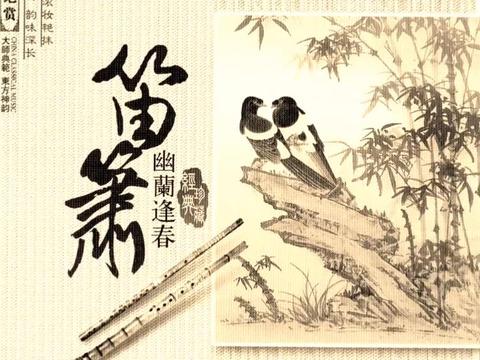 赏
妆艳抹
韵味深长
CHINA CLASSICAL MUSIC
大師典範 東方神韵
笛簫
幽蘭逢春
經典
珍藏